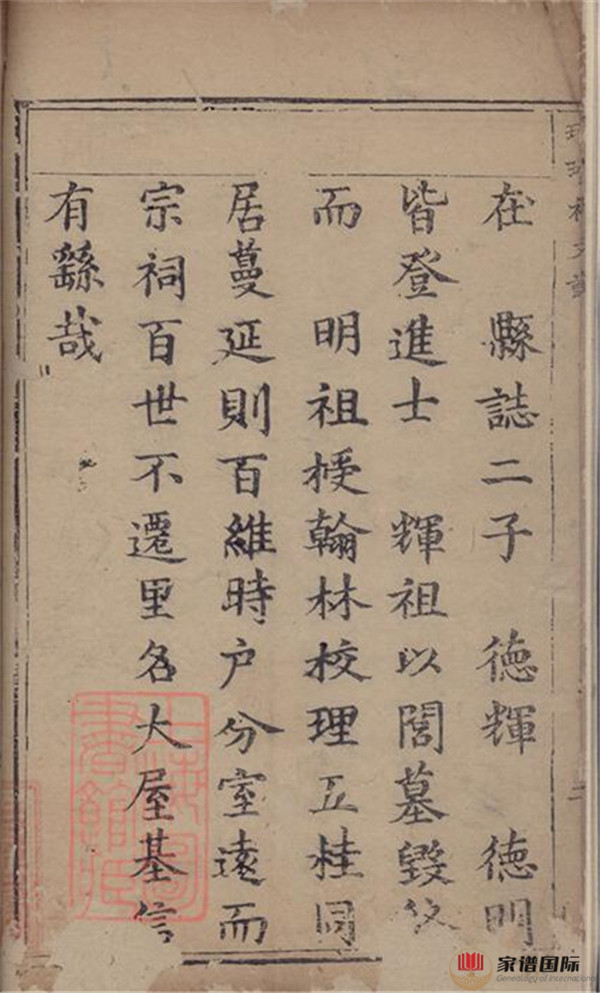 在　縣誌二子　徳輝　徳明
皆登進士　輝祖以閣墓毀
而　明祖授翰林校理五桂同
居蔓延則百維時户分室遠而
宗祠百世不遷里名大屋基信
有繇哉
二
上海圖書館藏
家谱国际
Genealogy of International